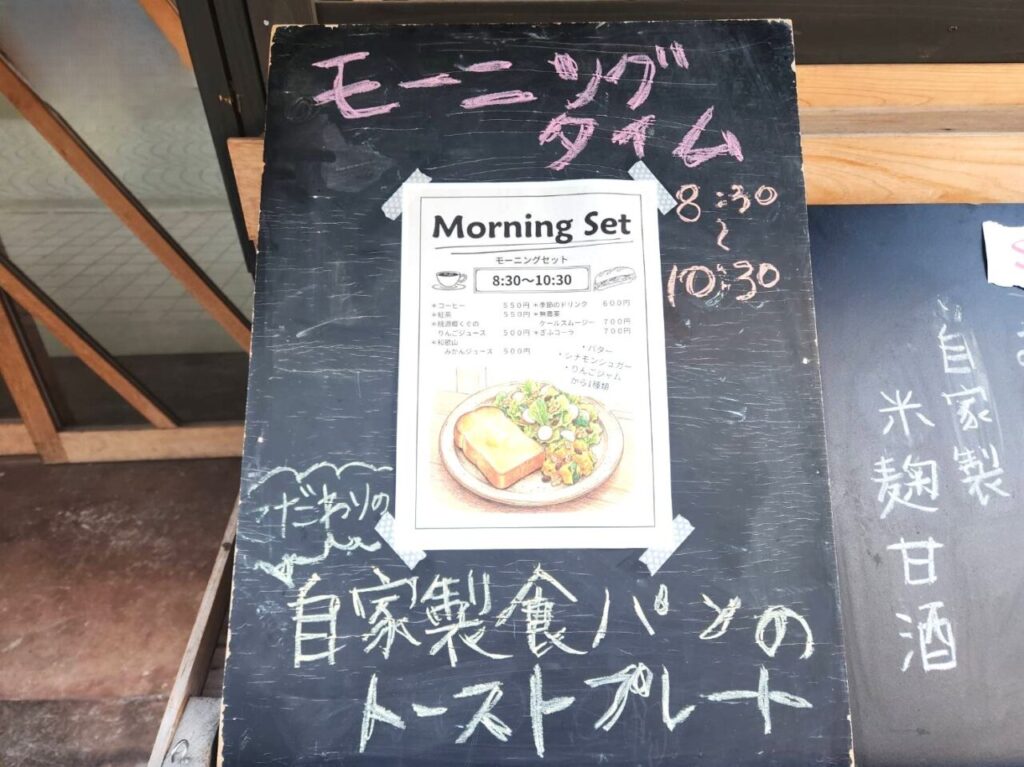 モーニング
タイム
8:30
〜
10:30
Morning Set
モーニングセット
8:30〜10:30
＊コーヒー 550円
＊紅茶 550円
＊桃源郷くぐの
りんごジュース 500円
＊和歌山
みかんジュース 500円
＊季節のドリンク 600円
＊無農薬
ケールスムージー 700円
＊ざふコーラ 700円
・バター
・シナモンシュガー
・りんごジャム
から1種類
こだわりの
自家製食パンの
トーストプレート
自家製
米麹甘酒